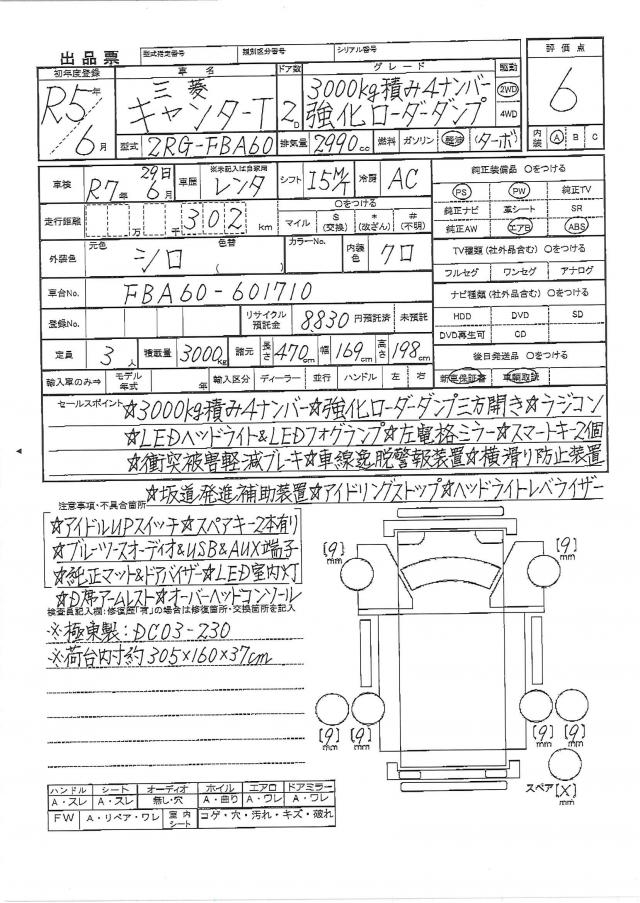 出品票 型式指定番号 類別区分番号 シリアル番号
初年度登録 車名 ドア数 グレード 駆動 評価点
R5年6月 三菱 キャンターT 2D 3000kg積み4ナンバー 強化ローダーダンプ 2WD 4WD 6
型式 2RG-FBA60 排気量 2990cc 燃料 ガソリン 軽油 (ターボ) 内装 A B C
車検 R7年 29日 6月 車歴 ※未記入は自家用 レンタ シフト I5M/T 冷房 AC 純正装備品 〇をつける
PS PW 純正TV
走行距離 万 千 302 km 〇をつける マイル $(交換) *(改ざん) #(不明) 純正ナビ 革シート SR
純正AW エアB ABS
外装色 元色 シロ 色替 ( ) カラーNo. 内装色 クロ TV種類(社外品含む) 〇をつける
フルセグ ワンセグ アナログ
車台No. FBA60-601710 ナビ種類(社外品含む) 〇をつける
登録No. リサイクル預託金 8,830 円預託済 未預託 HDD DVD SD
DVD再生可 CD
定員 3人 積載量 3000kg 諸元 長さ 470cm 幅 169cm 高さ 198cm 後日発送品 〇をつける
輸入車のみ⇒ モデル年式 年 輸入区分 ディーラー 並行 ハンドル 左 右 新車保証書 車輌取説
セールスポイント ☆3000kg積み4ナンバー☆強化ローダーダンプ三方開き☆ラジコン
☆LEDヘッドライト&LEDフォグランプ☆左電格ミラー☆スマートキー2個
☆衝突被害軽減ブレーキ☆車線逸脱警報装置☆横滑り防止装置
☆坂道発進補助装置☆アイドリングストップ☆ヘッドライトレベライザー
注意事項・不具合箇所
☆アイドルUPスイッチ☆スペアキー2本有り
☆ブルーツースオーディオ&USB&AUX端子
☆純正マット&ドアバイザー☆LED室内灯
☆D席アームレスト☆オーバーヘッドコンソール
検査員記入欄:修復歴「有」の場合は修復箇所・交換箇所を記入
※極東製:DC03-230
※荷台内寸約305×160×37cm
[9]mm [9]mm
[9]mm [9]mm [9]mm [9]mm
スペア [X]mm
ハンドル シート オーディオ ホイル エアロ ドアミラー
A・スレ A・スレ 無し・穴 A・曲り A・ワレ A・ワレ
FW A・リペア・ワレ 室内シート コゲ・穴・汚れ・キズ・破れ